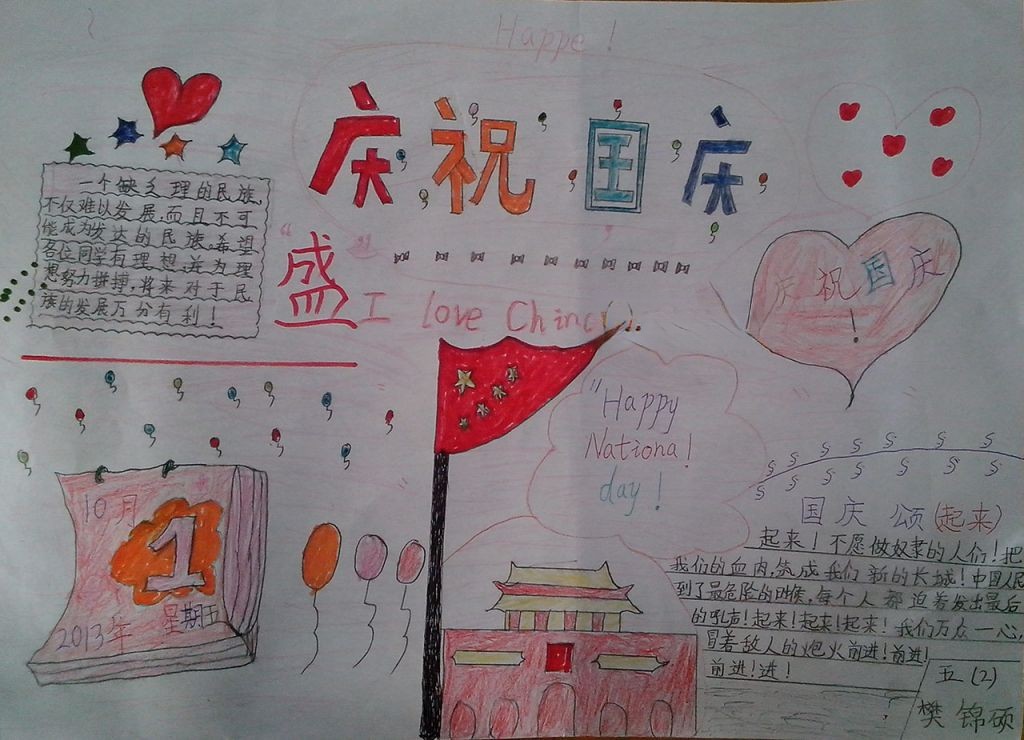 Happe!
庆祝国庆
一个缺乏理的民族,
不仅难以发展,而且不可
能成为发达的民族。希望
各位同学有理想,并为理
想努力拼搏,将来对于民
族的发展万分有利!
“盛”
I love China().
庆祝国庆
!
"Happy
National
day!
10月
1
2013年
星期五
国庆颂(起来)
起来!不愿做奴隶的人们!把
我们的血肉,筑成我们新的长城!中国人民
到了最危险的时候,每个人都迫着发出最后
的吼声!起来!起来!起来!我们万众一心,
冒着敌人的炮火前进!前进!
前进!进!
五(2)
樊锦硕